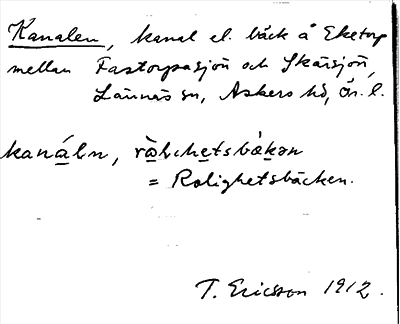 Kanalen, kanal el. bäck å Eketorp
mellan Fastorpasjön och Skärsjön,
Lännäs sn, Askers hd, Ör. l.
kanáln,
= Rolighetsbäcken.
T. Ericsson 1912.